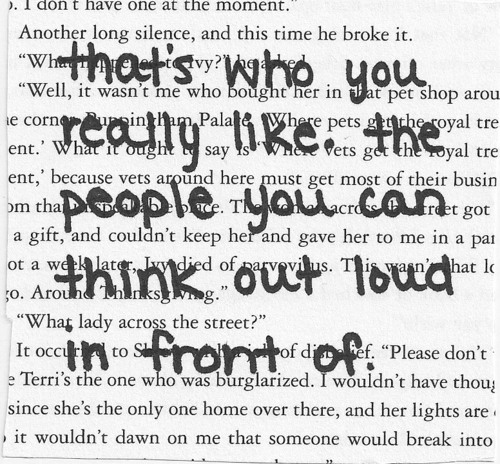 that's who you
really like. the
people you can
think out loud
in front of.
I don't have one at the moment."
Another long silence, and this time he broke it.
“What happened to Ivy?” he asked.
“Well, it wasn't me who bought her in that pet shop arou
e corner, Palace, ‘Where pets get the royal tre
ent.’ What it ought to say is ‘Where vets get the royal tre
ent,’ because vets around here must get most of their busin
om that unspeakable place. The woman across the street got
a gift, and couldn't keep her and gave her to me in a
ot a week later, Ivy died of parvovirus. This wasn't that
go. Around Thanksgiving.”
“What lady across the street?”
It occurred to of disbelief. “Please don't
e Terri's the one who was burglarized. I wouldn't have thoug
since she's the only one home over there, and her lights are
it wouldn't dawn on me that someone would break into